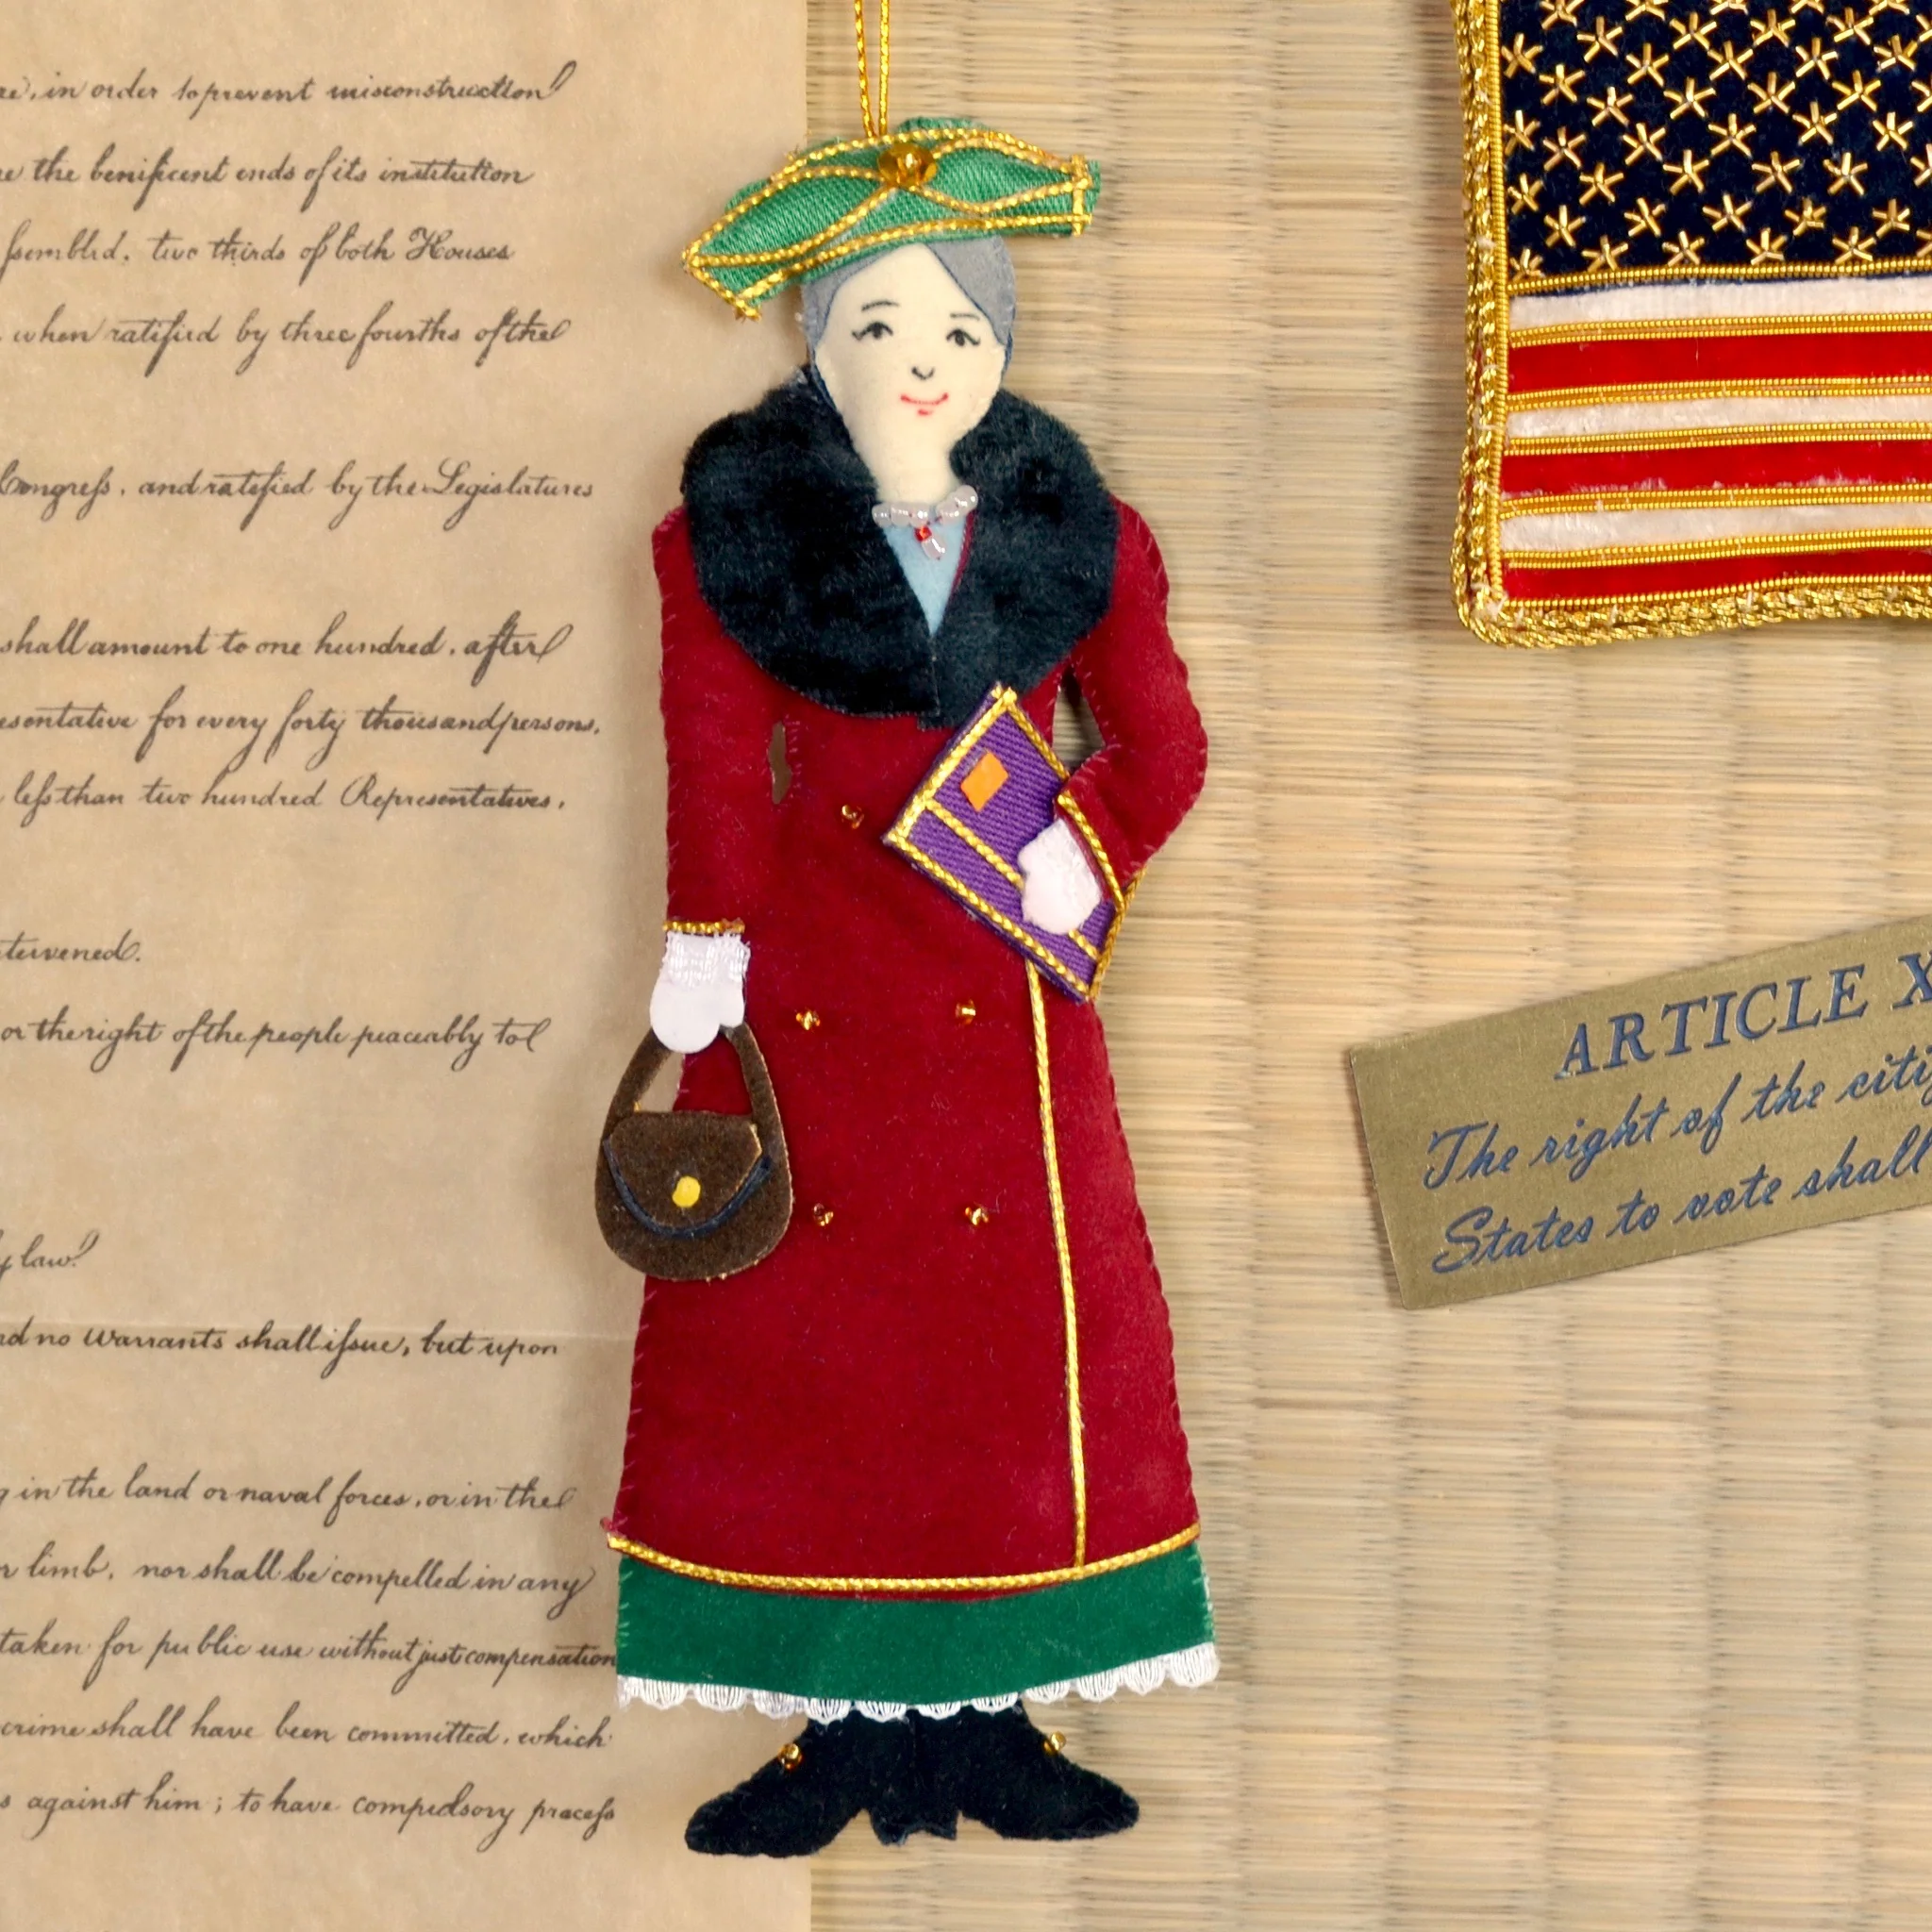 in order to prevent misconstruction
the benificent ends of its institution
ſsembled. two thirds of both Houses
when ratified by three fourths of the
Congreſs. and ratified by the Legislatures
shall amount to one hundred, after
esentative for every forty thousand persons.
leſs than two hundred Representatives,
tervened.
or the right of the people peaceably to
law.
nd no Warrants shall iſsue, but upon
in the land or naval forces, or in the
limb, nor shall be compelled in any
taken for public use without just compensation
crime shall have been committed, which
against him; to have compulsory proceſs
ARTICLE X
The right of the citi
States to vote shall